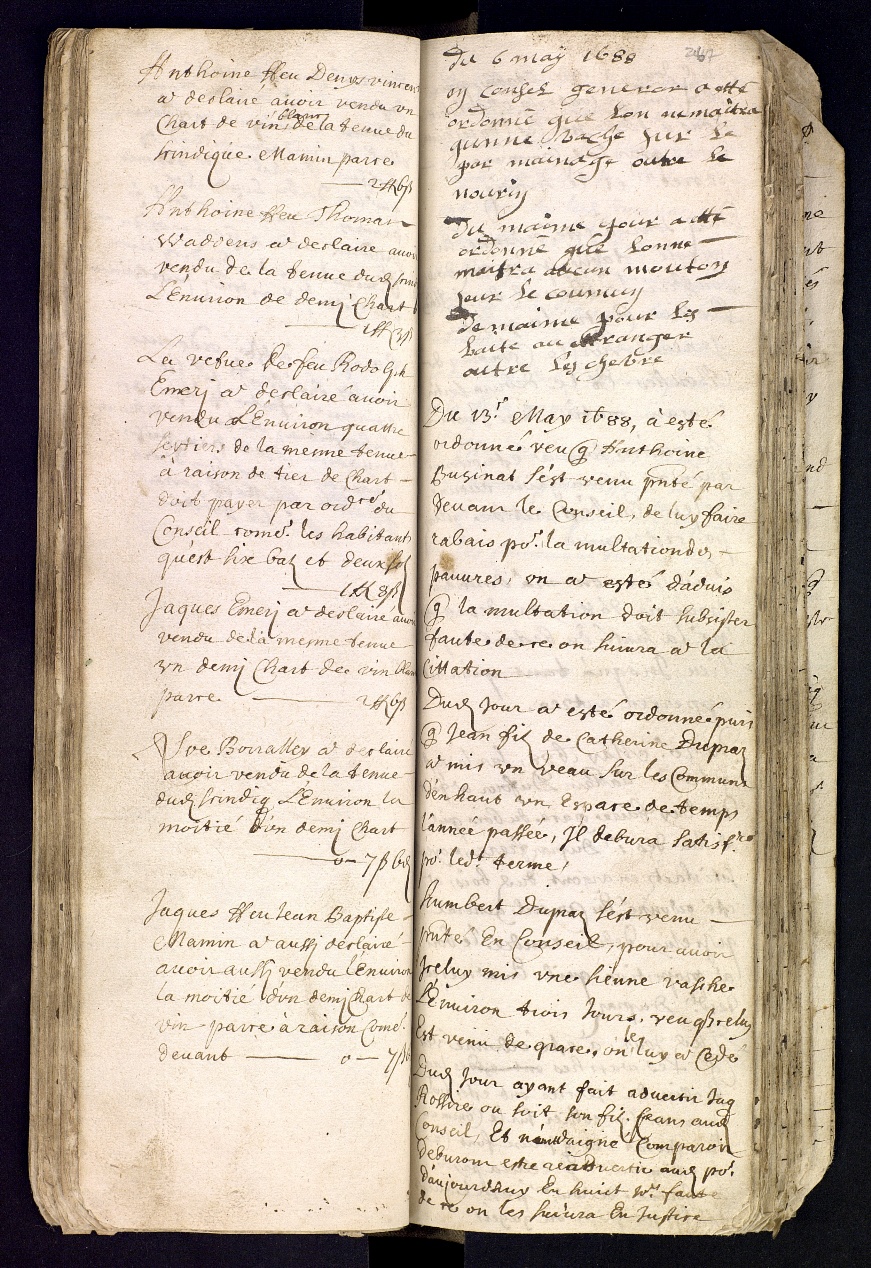 Anthoine ffeu Denys vincent
a desclairé avoir vendu vn
Chart de vin blanc de la tenue du
scindique Mamin parce
2 ff 6 ß
Anthoine ffeu Thomas
a desclairé avoir
vendu de la tenue dud
L'Environ de demj Chart
1 ff 3 ß
La vefue de feu Rodolph
Emerj a desclairé avoir
vendu L'Environ quattre
sextiers de la mesme tenue
à raison de tier de Chart
doit payer par ord.ce du
Conseil come les habitants
qu'est six baz et deux sol
1 ff 8 ß
Jaques Emerj a desclairé avoir
vendu de la mesme tenue
vn demj Chart de vin blanc
parce 2 ff 6 ß
Yve Borralley a desclairé
avoir vendu de la tenue
dud scindiq L'Environ la
moitié d'un demj Chart
0 - 7 ß 6 d
Jaques ffeu Jean Baptiste
Mamin a aussj desclairé
avoir aussj vendu l'Environ
la moitié d'un demj Chart de
vin parce à raison Come
devant 0 - 7 ß
du 6 maÿ 1688
en conseil general a esté
ordonné que lon ne maitra
qunne vache sur le
par mainage outre le
nourin
du maime jour a esté
ordonné que lonne
maitra aucun moutons
sur le commun
de maime pour les
baite au étranger
outre les chevre
Du 13.e May 1688, à esté
ordonné veu q Anthoine
Businat s'est venu pnté par
devant le Conseil, de luy faire
rabais po.r la multation des
pauures, on a esté d'aduis
q la multation doit subsister
faute de ce on suiura a la
Cittation
Dud Jour a esté ordonné puis
q Jean filz de Catherine Dupraz
a mis vn veau sur les Communs
d'enhaut vn Espace de temps
l'année passée, Il debura satisf.re
po.r led.t terme,
Humbert Dupraz s'est venu
pnté En Conseil, pour avoir
Iceluy mis vne sienne vasche
L'Environ trois Jours, veu q Iceluy
Est venu de grace, on les luy a Cedé
Dud Jour ayant fait aduertir Jaq
ou soit son filz frans aud
Conseil, Et n'ont daigné Comparoir
deburont estre readuertis aud po.r
d'aujourdhuy En huict Jo.rs faute
de ce on les suiura En Justice